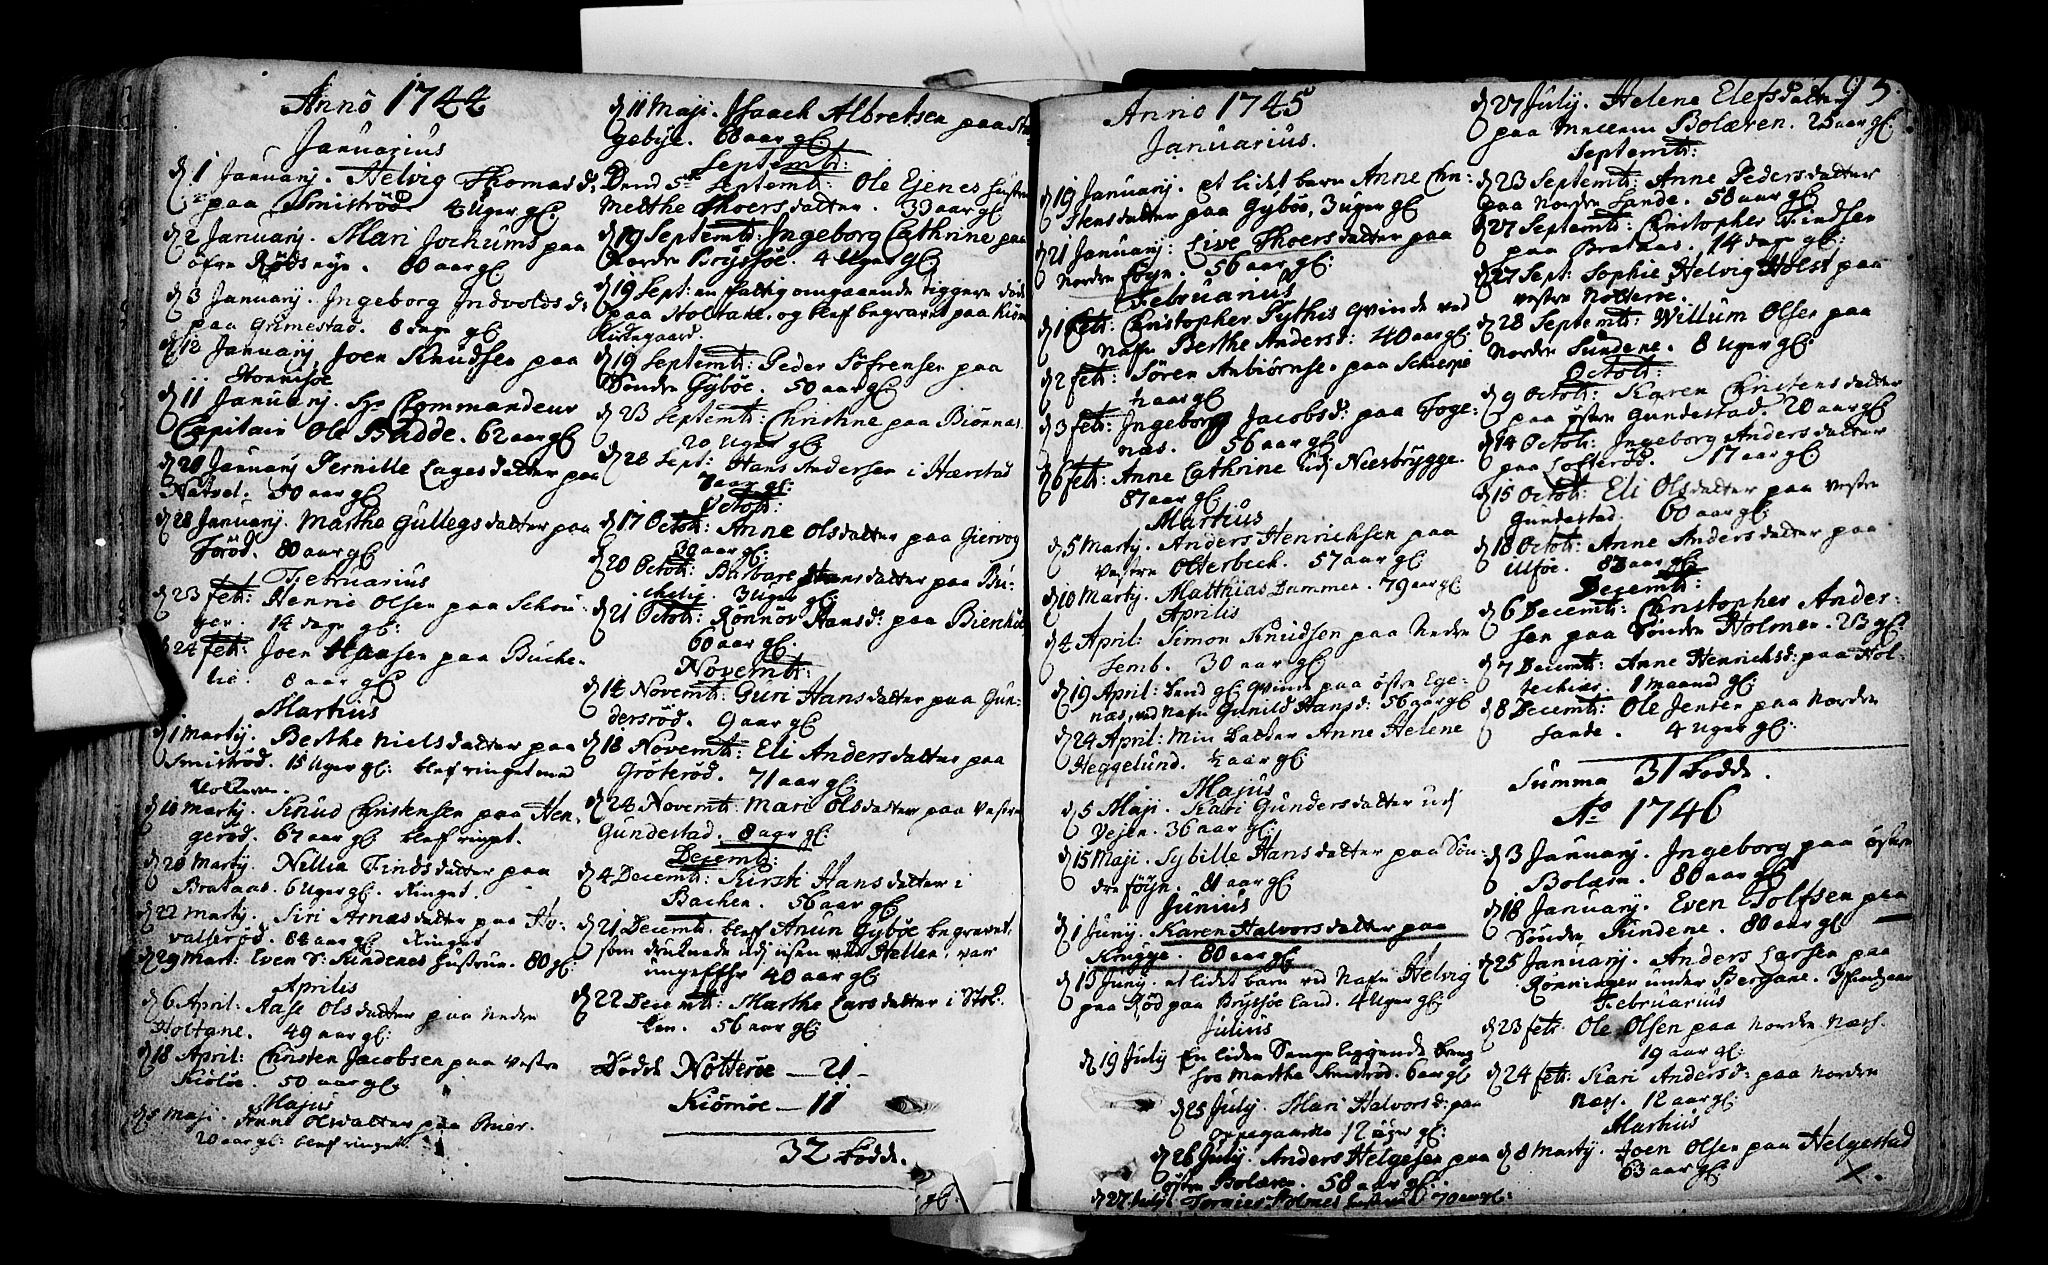 Anno 1744
Januarius
d 1 Januarij. Helvig Thomasd:
paa Smiströd. 4 Uger gl:
d 2 Januarij. Mari Jochums paa
öfre Rödseye. 60 aar gl:
d 3 Januarij. Ingeborg Indvoldsd:
paa Grimestad. 8 dage gl:
d 12 Januarij. Joen Knudsen paa
d 11 Januarij. Hr Commandeur
Capitain Ole Budde. 62 aar gl
d 20 Januarij Pernille Lagesdatter paa
80 aar gl
d 28 Januarij. Marthe Gullegsdatter paa
Foröd. 80 aar gl
Februarius
d 23 febr: Henric Olsen paa Schou
ger. 14 dage gl:
d 24 febr: Joen Hansen paa Buche-
lie. 8 aar gl
Martius
d 1 Martij. Berthe Nielsdatter paa
Smiströd. 15 Uger gl: blef ringet med
d 10 Martij. Knud Christensen paa Hen-
geröd. 67 aar gl blef ringet.
d 20 Martij. Nillia Findsdatter paa
Brataas. 6 Uger gl. Ringet
d 22 Martij. Siri Arnesdatter paa Ho-
valseröd. 84 aar gl. Ringet
d 29 Mart: Even S: Kindenes Hustrue. 80 gl:
Aprilis
d 6 April: Aase Olsdatter paa neder
Holtane. 49 aar gl:
d 18 April: Christen Jacobsen paa Vestre
Kiölöe. 50 aar gl:
Majus
Maji. Anne Olsdatter paa Buer.
20 aar gl: blef ringet
d 11 Maji. Isaach Albretsen paa
gebye. 68 aar gl:
Septembr:
Dend 5te Septembr: Ole Ejenes Hustru
Merthe Thoersdatter. 33 aar gl
d 19 Septembr: Ingeborg Cathrine paa
Norder Bryssöe. 4 Uger gl
d 19 Sept: en fattig omgaaende tiggere död
paa Holtane, og blef begravet paa Kiön
Kirkegaard.
d 19 Septembr: Peder Söfrensen paa
Sönder Gyböe. 50 aar gl
d 23 Septembr: Christine paa Biönnes
20 Uger gl:
d 28 Sept: Hans Andersen i Hærstad
7 aar gl:
Octobr:
d 17 Octobr: Anne Olsdatter paa Giervog
30 aar gl:
d 20 Octobr: Barbare Hansdatter paa Bu-
chelie. 3 Uger gl:
d 21 Octobr: Rönnöv Hansd: paa Bienk
60 aar gl:
Novembr:
d 14 Novembr: Guri Hansdatter paa Gun-
dersröd. 9 aar gl:
d 18 Novembr: Eli Andersdatter paa
Gröteröd. 71 aar gl:
d 24 Novembr: Mari Olsdatter paa Vestre
Gundestad. 8 aar gl:
Decembr:
d 4 Decembr: Kirsti Hansdatter i
Bachen. 56 aar gl:
d 21 Decembr. blef Anun Gyböe begravet,
som druknede udj isen ved Hellen, var
ungefehr 40 aar gl
d 22 Decembr: Marthe Larsdatter i Stoc-
ken. 56 aar gl:
Dödde Nötteröe — 21 -
Kiömöe — 11
32 Dödde.
gl.
Anno 1745
Januarius.
d 19 Januarij. et lidet barn Anne Chri-
stensdatter paa Gyböe, 3 uger gl
d 21 Januarij: Live Thoersdatter paa
Norder föyn. 56 aar gl:
Februarius
d 1 febr: Christopher Tythis qvinde ved
nafn Berthe Andersd: 40 aar gl
d 2 febr: Sören Anbiörnse. paa Schierpe
½ aar gl
d 3 febr: Ingeborg Jacobsd: paa Foge-
næs. 56 aar gl
d 6 febr: Anne Cathrine udj Neesbrygge.
87 aar gl:
Martius
d 5 Martij. Anders Henrichsen paa
Vestre Otterbech. 57 aar gl:
d 10 Martij. Matthias Dammen. 79 aar gl
Aprilis
d 4 April: Simon Knudsen paa Neder
Semb. 30 aar gl:
d 19 April: Dend gl. qvinde paa östre Ege-
næs, ved nafn Gunild Hansd: 56 aar gl
d 24 April: Min Datter Anne Helene
Heggelund. ½ aar gl:
Majus
d 5 Maji. Kari Gundersdatter udj
Vejen. 36 aar gl:
d 15 Maji. Sybille Hansdatter paa Sön-
dre föyn. 81 aar gl
Junius
d 1 Junij. Karen Halvorsdatter paa
Krugge. 80 aar gl
d 13 Junij. et lidet barn ved Nafn Helvig
paa Röd paa Bryssöe land. 4 Uger gl:
Julius
d 19 July En liden Sengeliggende
hos Marthe Smiströd. 6 aar gl
d 25 July. Mari Halvorsd: paa
oppegaarde 12 uger gl:
d 26 July. Anders Helgesen paa
östre Bolæren. 58 aar gl:
d 27 July. Holmes 70 aar gl:
195.
d 27 July. Helene Elefsdatter
paa Mellem Bolæren. 25 aar gl:
Septembr:
d 23 Septembr: Anne Pedersdatter
paa Norder Sande. 58 aar gl:
d 27 Septembr: Christopher Findsen
paa Brataas. 14 dage gl:
d 27 Sept: Sophie Helvig Holst paa
vestre Nötteröe.
d 28 Septembr: Willum Olsen paa
Norder Sundene. 8 Uger gl:
Octobr:
d 9 Octobr: Karen Christensdatter
paa östre Gundestad. 20 aar gl
d 14 Octobr: Ingeborg Andersdatter
paa Lofteröd. 17 aar gl
d 15 Octobr: Eli Olsdatter paa vestre
Gundestad. 60 aar gl:
d 18 Octobr: Anne Andersdatter paa
Ulföe. 87 aar gl:
Decembr:
d 6 Decembr: Christopher Ander-
sen paa Sönder Holmen. 23 gl:
d 7 Decembr: Anne Henrichsd: paa Hol-
techier. 1 maaned gl:
d 8 Decembr: Ole Jensen paa Norder
Sande. 4 Uger gl:
Summa 31 Dödde.
Ao 1746
d 3 Januarij. Ingeborg paa östre
Bolæren. 86 aar gl:
d 18 Januarij. Even Rolfsen paa
Sönder Kindene. 80 aar gl
d 25 Januarij. Anders Larsen paa
Rönningen under Bergane.
Februarius
d 23 febr: Ole Olsen paa Norder Næss.
19 aar gl:
d 24 febr: Kari Andersd: paa Norder
Næss. 12 aar gl:
Martius
d 8 Martij. Joen Olsen paa Helgestad
63 aar gl: